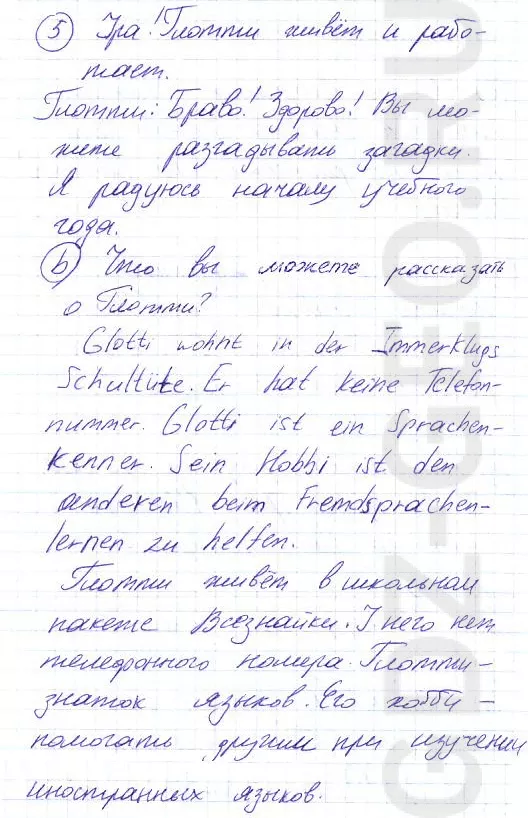 5 Ура! Глотти живёт и рабо-
тает.
Глотти: Браво! Здорово! Вы мо-
жете разгадывать загадки.
Я радуюсь началу учебного
года.
b Что вы можете рассказать
о Глотти?
Glotti wohnt in der Immerklugs
Schultüte. Er hat keine Telefon-
nummer. Glotti ist ein Sprachen-
kenner. Sein Hobbi ist den
anderen beim Fremdsprachen-
lernen zu helfen.
Глотти живёт в школьном
пакете Всезнайки. У него нет
телефонного номера. Глотти -
знаток языков. Его хобби -
помогать другим при изучении
иностранных языков.
GDZ-GEO.RU